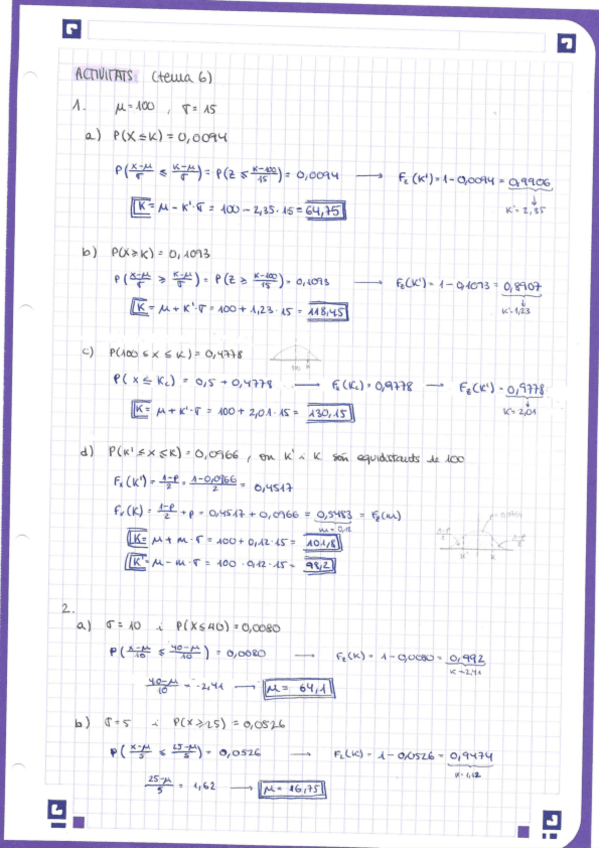 ACTIVITATS (tema 6)
1. μ=100 , σ=15
a) P(X≤K)=0,0094
P((X-μ)/σ ≤ (K-μ)/σ) = P(Z ≤ (K-100)/15) = 0,0094 → Fz(K')=1-0,0094 = 0,9906
K'=2,35
K = μ - K'·σ = 100 - 2,35·15 = 64,75
b) P(X≥K) = 0,1093
P((X-μ)/σ ≥ (K-μ)/σ) = P(Z ≥ (K-100)/15) = 0,1093 → Fz(K') = 1-0,1093 = 0,8907
K'=1,23
K = μ + K'·σ = 100 + 1,23·15 = 118,45
c) P(100 ≤ X ≤ K) = 0,4778
P(X ≤ K) = 0,5 + 0,4778 → Fx(K) = 0,9778 → Fz(K') = 0,9778
K'=2,01
K = μ + K'·σ = 100 + 2,01·15 = 130,15
d) P(K' ≤ X ≤ K) = 0,0966 , on K' i K són equidistants de 100
Fx(K') = (1-P)/2 = (1-0,0966)/2 = 0,4517
Fx(K) = (1-P)/2 + P = 0,4517 + 0,0966 = 0,5483 = Fz(m)
m=0,12
K = μ + m·σ = 100 + 0,12·15 = 101,8
K' = μ - m·σ = 100 - 0,12·15 = 98,2
2.
a) σ=10 i P(X≤40)=0,0080
P((X-μ)/10 ≤ (40-μ)/10) = 0,0080 → Fz(K) = 1-0,0080 = 0,992
K=2,41
(40-μ)/10 = -2,41 → μ= 64,1
b) σ=5 i P(X≥25) = 0,0526
P((X-μ)/5 ≤ (25-μ)/5) = 0,0526 → Fz(K) = 1-0,0526 = 0,9474
(25-μ)/5 = 1,62 → μ= 16,75